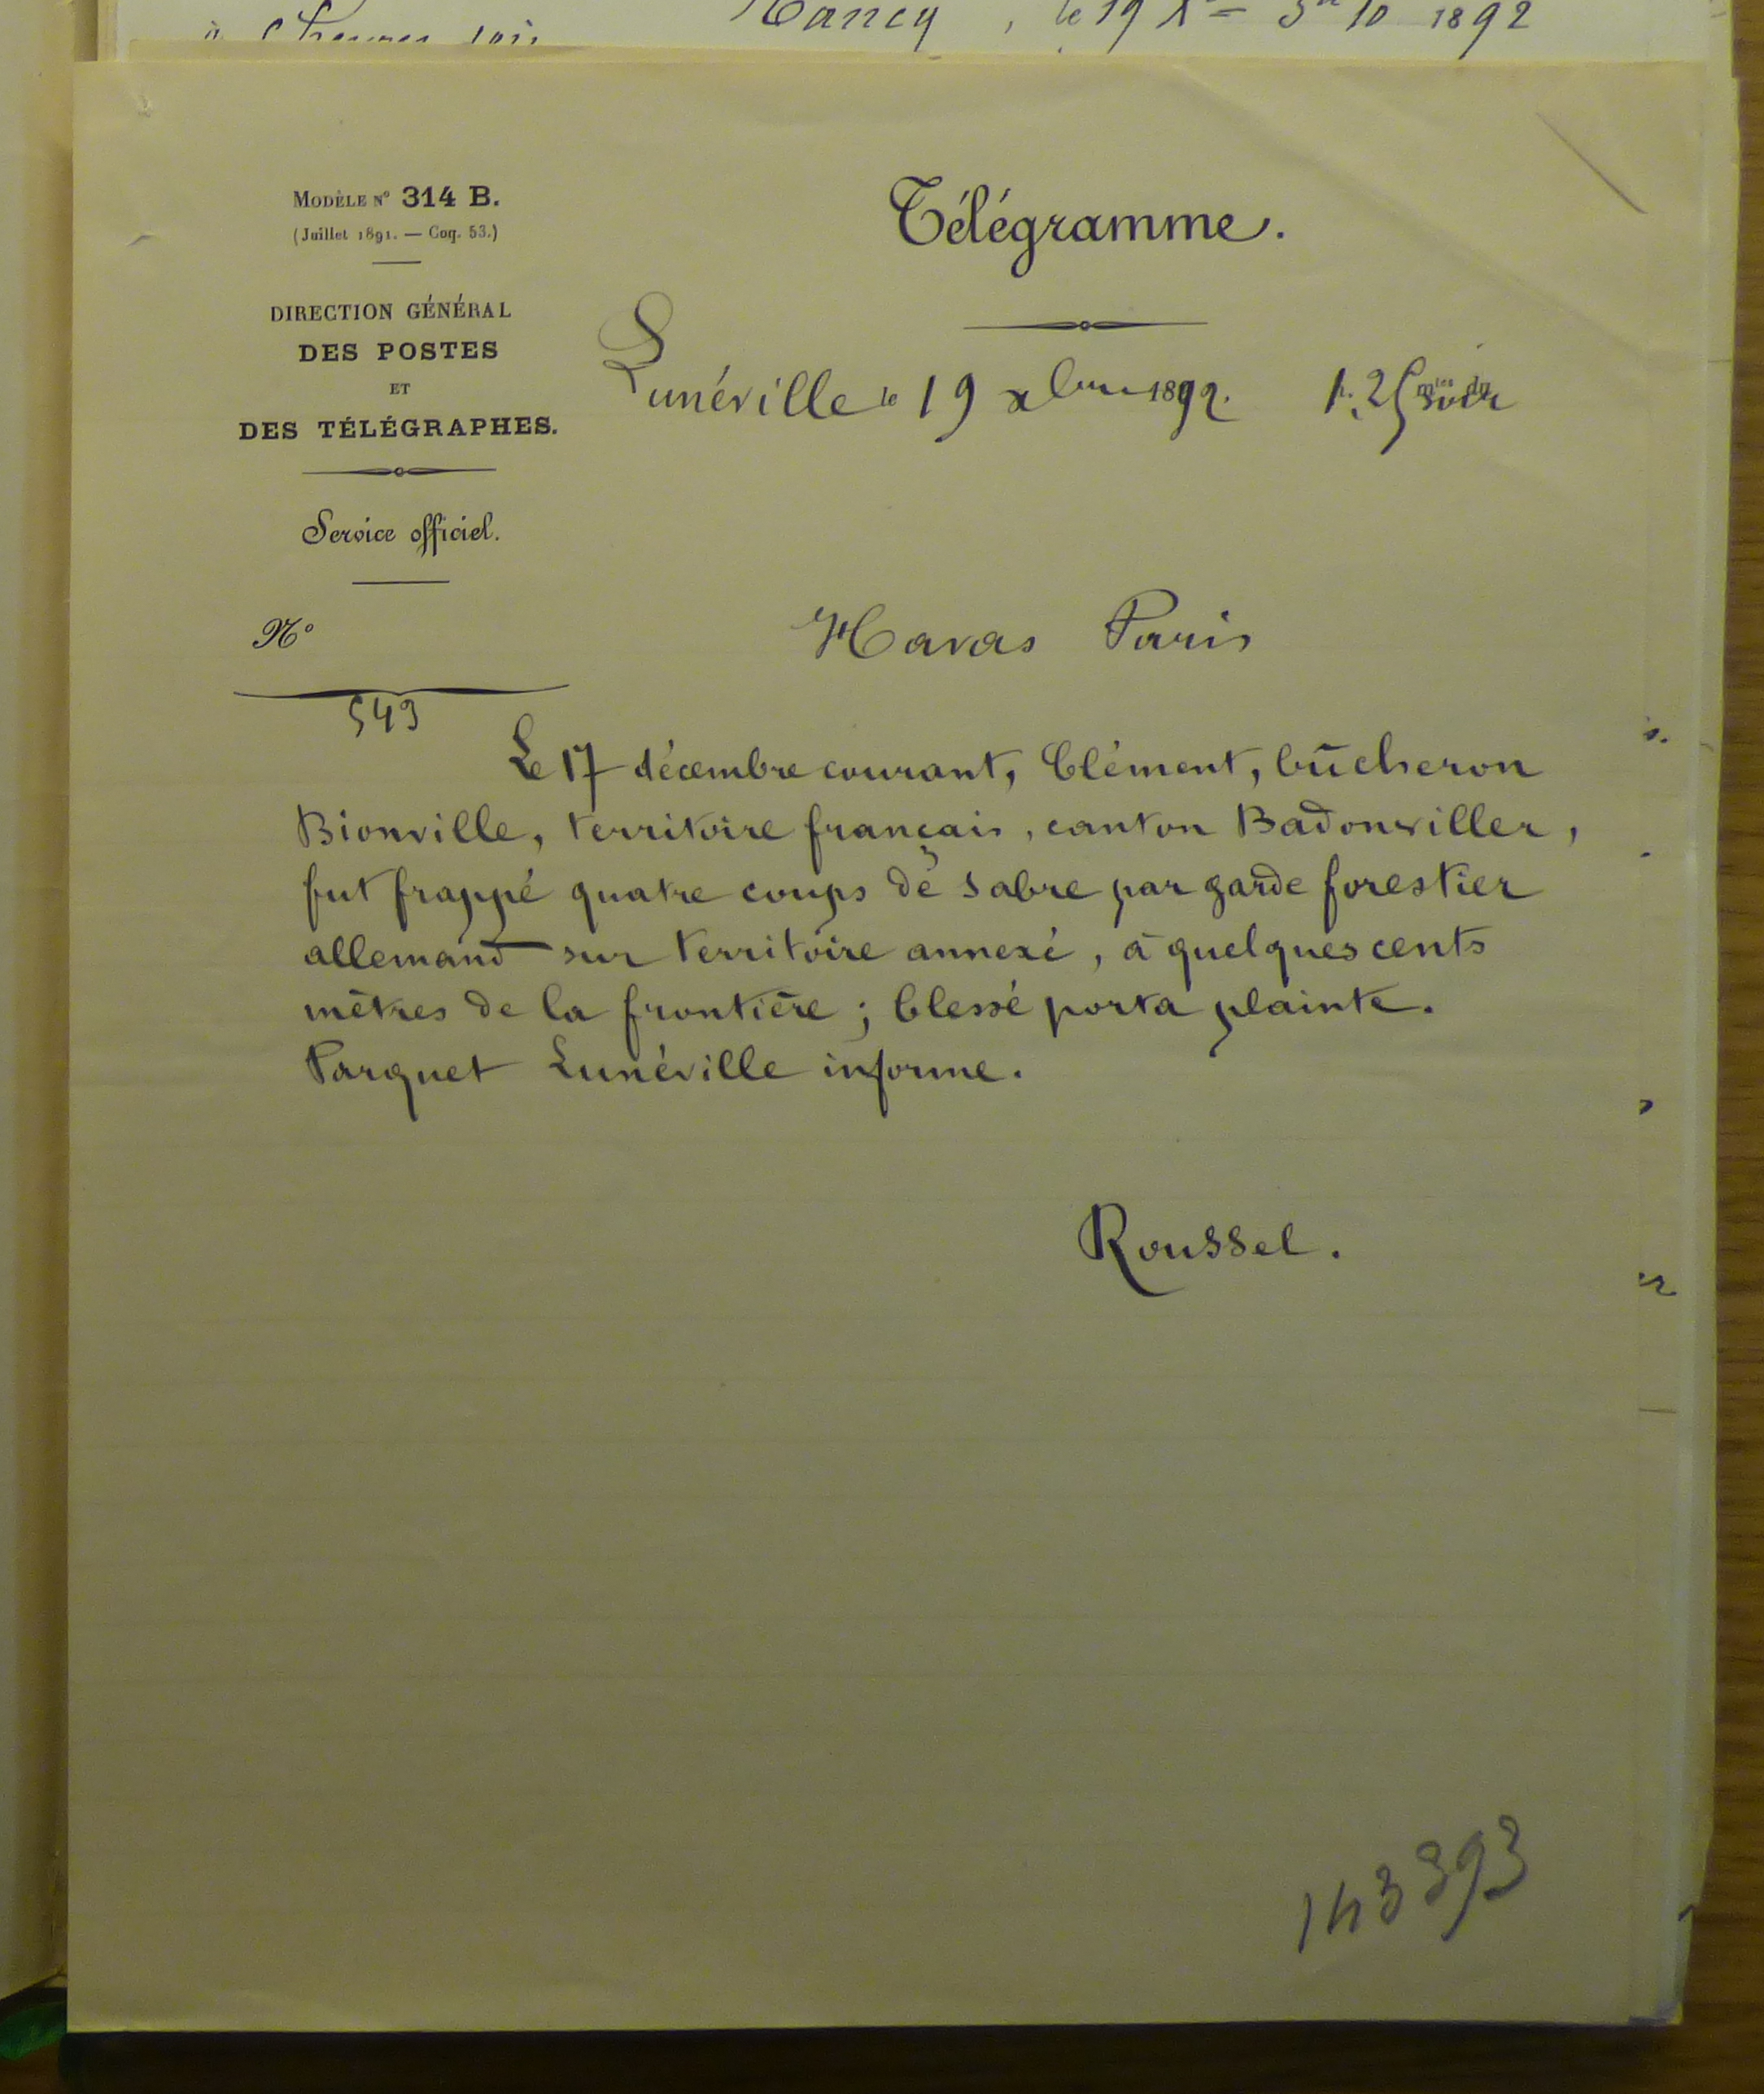 Nancy, le 19 1892
Modèle N° 314 B.
(Juillet 1891. — Coq. 53.)
DIRECTION GÉNÉRAL
DES POSTES
ET
DES TÉLÉGRAPHES.
Service officiel.
N°
543
Télégramme.
Lunéville le 19 xbre 1892. 1h. 25 soir
Havas Paris
Le 17 décembre courant, Clément, bûcheron
Bionville, territoire français, canton Badonviller,
fut frappé quatre coups de sabre par garde forestier
allemand sur territoire annexé, à quelques cents
mètres de la frontière ; blessé porta plainte.
Parquet Lunéville informe.
Roussel.
143393